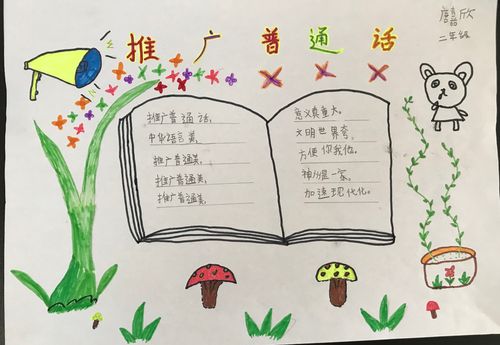 推广普通话
欣
二年级
推广普通话,
中华语言美,
推广普通美,
推广普通美,
推广普通美,
意义真重大。
文明世界夸,
方便你我他。
神州是一家,
加速现代化。